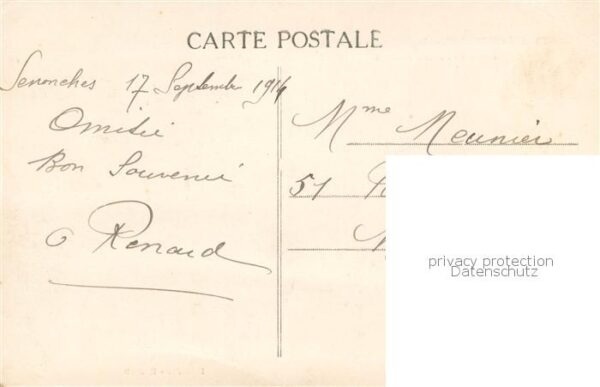 CARTE POSTALE
Senonches 17 Septembre 1914
Amitié
Bon Souvenir
Renard
Mme Meunier
51
privacy protection
Datenschutz